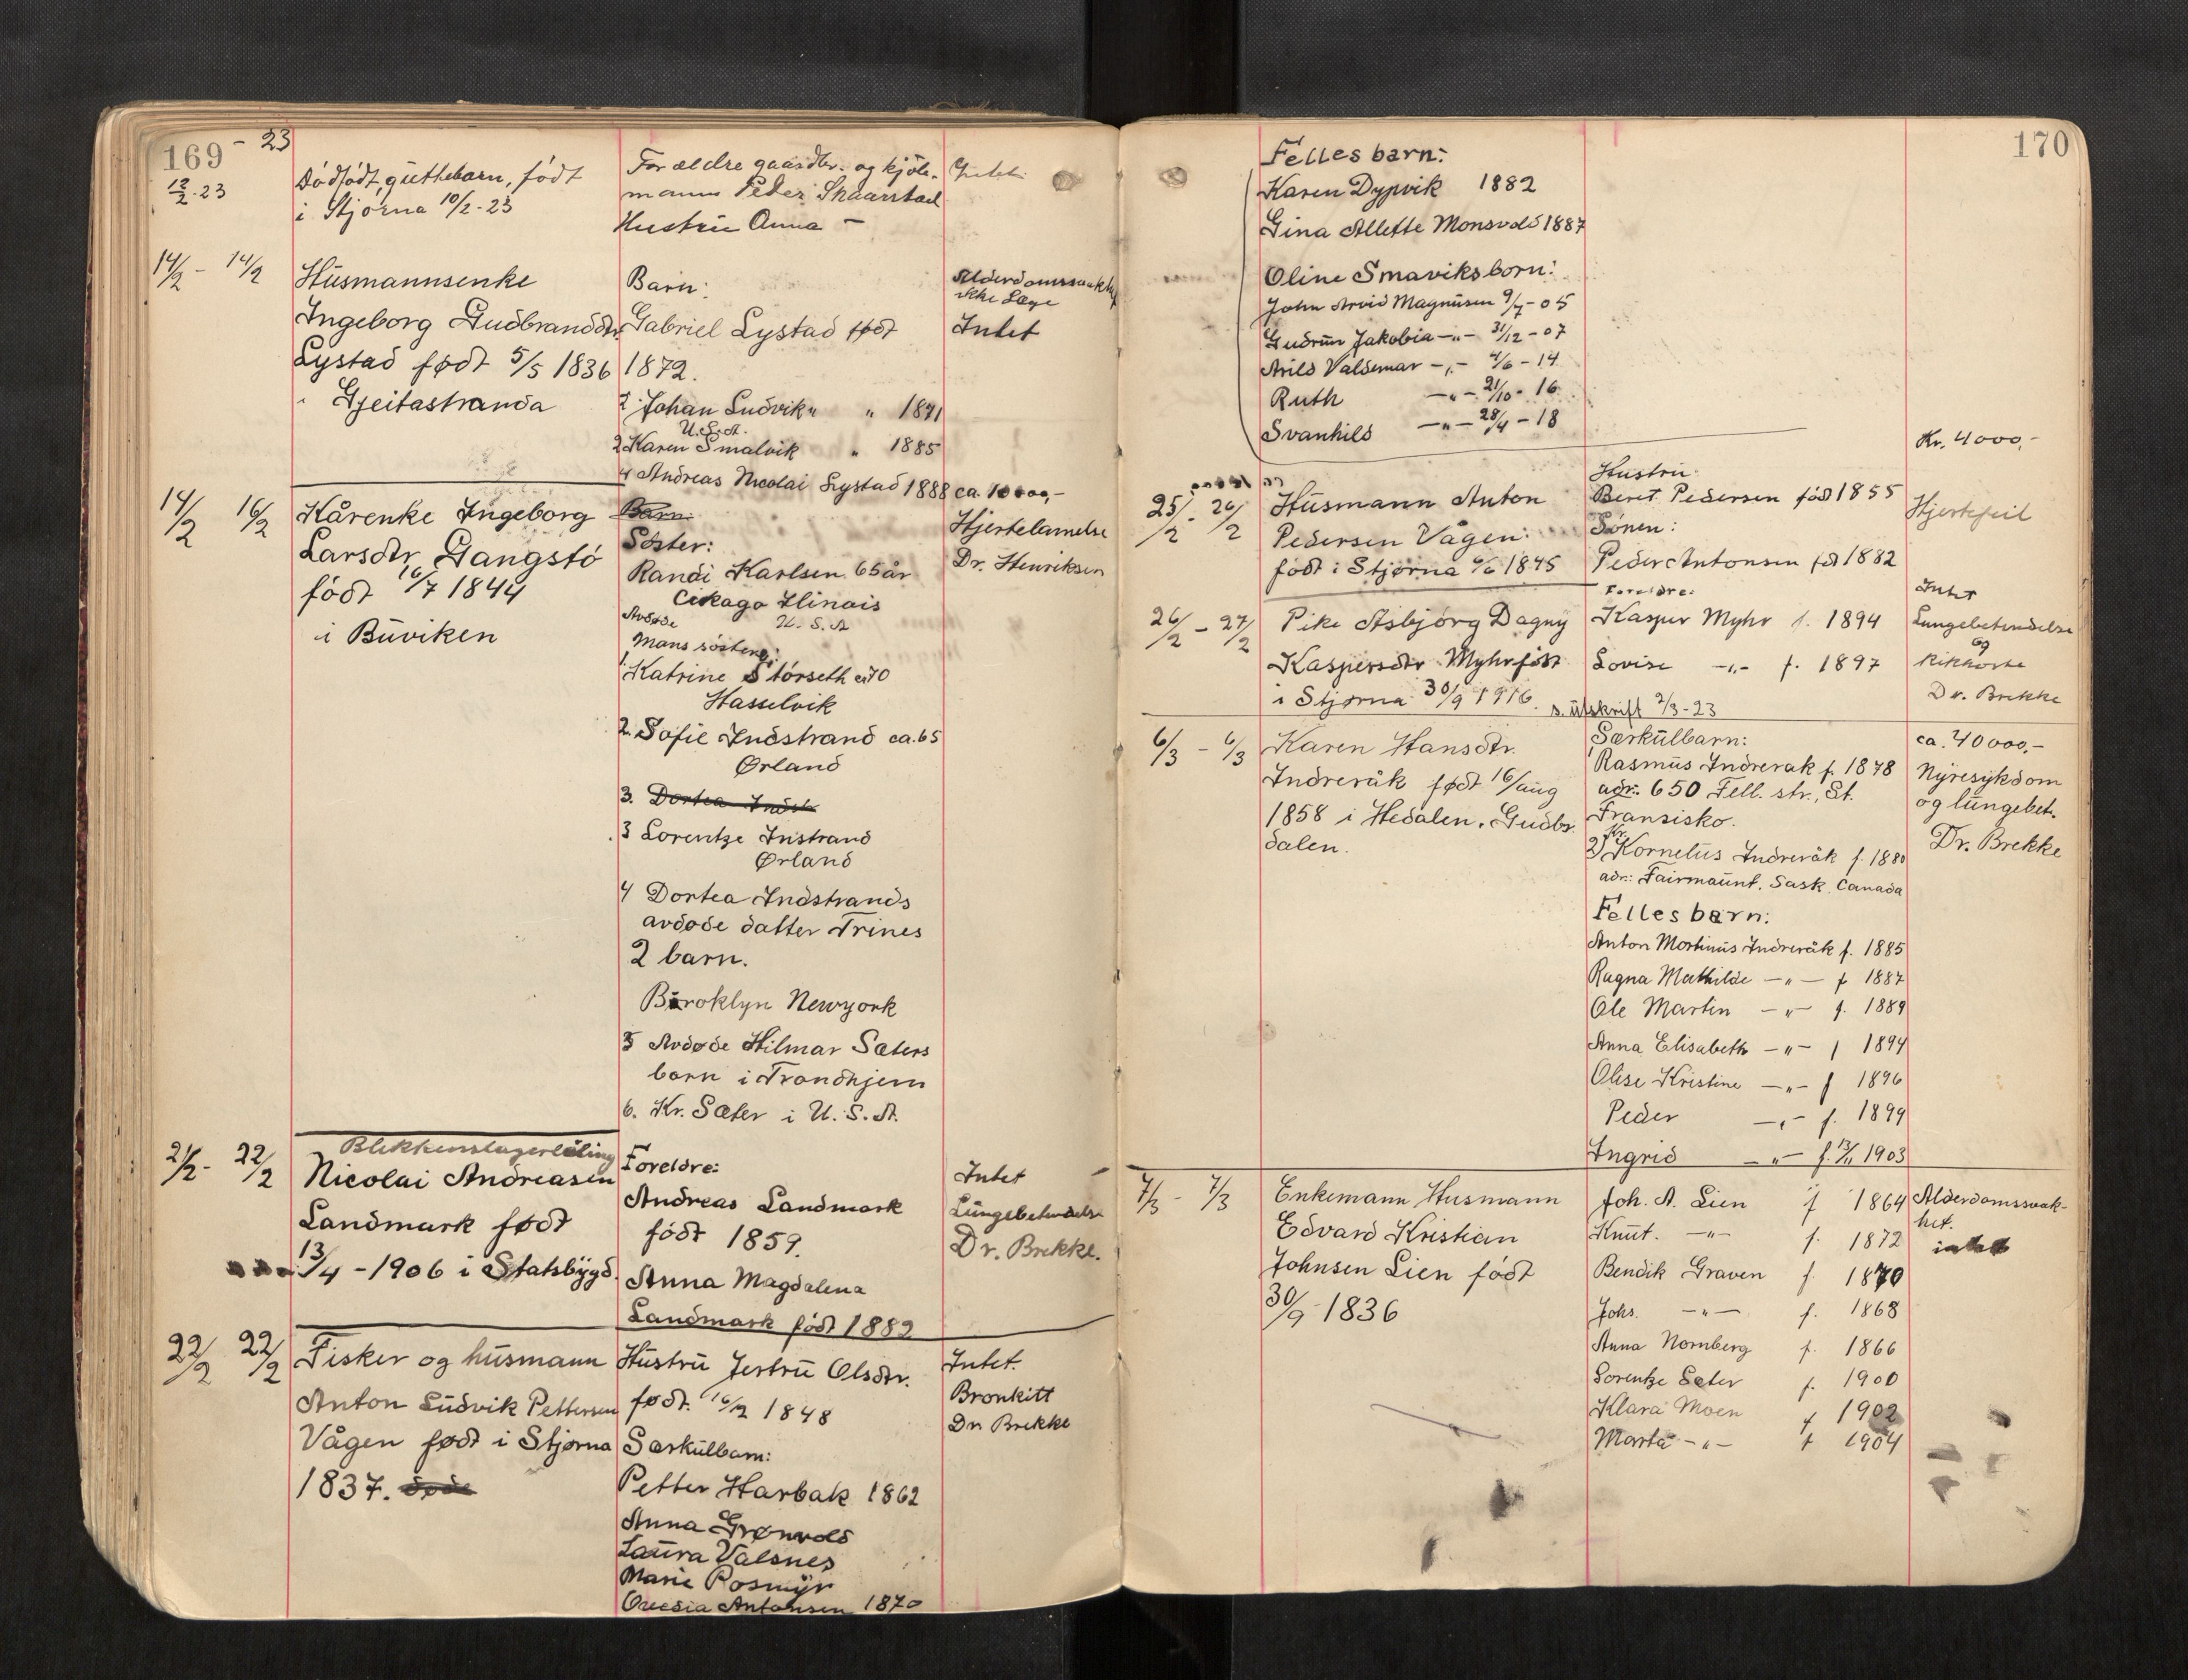 169 - 23
12/2.23
Dødfødt guttebarn, født
i Stjørna 10/2-23
Foreldre gaardbr. og kjøb-
mann Peder Skaarstad
Hustru Anna -
Intet
14/2 - 14/2
Husmannsenke
Ingeborg Gudbrandsdtr
Lystad født 5/5 1836
Gjeitastranda
Barn:
Gabriel Lystad født
1872.
2 Johan Ludvik " " 1891
U.S.A.
2 Karen Smalvik " 1885
4 Andreas Nicolai Lystad 1888
Alderdomssvakh
ikke Læge
Intet
14/2 16/2
Kårenke Ingeborg
Larsdtr Gangstö
född 16/7 1844
i Buviken
Barn
Söster:
Randi Karlsen 65 år
Cikago Ilinais
U. S. A
Avdøde
Mans søstens:
1. Katrine Storseth ca 70
Hasselvik
2. Sofie Indstrand ca. 65
Ørland
3. Dortea Indst
3 Lorentze Instrand
Ørland
4 Dortea Indstrands
avdøde datter Trines
2 barn.
Buroklyn Newyork
5 Avdøde Hilmar Sæters
born i Trondhjem
6. Kr. Sæter i U. S. A.
ca. 10000,-
Hjertelamelse
Dr. Henriksen
21/2. 22/2
Blikkenslagerlärling
Nicolai Andreasen
Landmark født
13/4 - 1906 i Statsbygd
Foreldre:
Andreas Landmark
født 1859.
Anna Magdalena
Landmark født 1882
Intet
Lungebetendelse
Dr. Brekke.
22/2 22/2
Fisker og husmann
Anton Ludvik Pettersen
Vågen født i Stjørna
1837. døde
Hustru Jertru Olsdtr.
født. 16/12 1848
Særkulbarn:
Petter Harbak 1862
Anna Grønvold
Laura Valsnes
Marie Rosmyr
Antonsen 1870
Intet.
Bronkitt
Dr Brekke
170
Felles barn:
Karen Dypvik 1882
Gina Allette Monsvold 1887
Oline Smaviks born:
John Arvid Magnusen 9/7-05
Gudrun Jakobia -"- 31/12 - 07
Arild Valdemar -"- 4/6 - 14
Ruth -"- 21/10 - 16
Svanhild -"- 28/4 - 18
25/2. 26/2
Husmann Anton
Pedersen Vågen.
født i Stjørna 1845
Hustru
Beret Pedersen född 1855
Sönen:
Peder Antonsen fd 1882
Kr. 4000,-
Hjertefeil
26/2 - 27/2
Pike Asbjörg Dagny
Kaspersdtr Myhr født
i Stjørna 30/9 1916.
Foreldre:
Kaspar Myhr f. 1894
Lovise -"- f. 1897
s. utskrift 2/3-23
Intet
Lungebetendelse
og
Kikhoste
Dr. Brekke
6/3 - 6/3
Karen Hansdtr.
Indreråk født 16/aug
1858 i Hedalen, Gudbr.
dalen.
Særkulbarn:
1 Rasmus Indrerak f. 1878
adr. 650 Fell. str., St.
Fransisko.
2) Kornelius Indreråk f. 1880
adr: Fairmaunt, Sask. Canada
Felles barn:
Anton Martinus Indreråk f. 1885
Ragna Mathilde -"- f 1887
Ole Martin -"- f. 1889
Anna Elisabeth -"- f 1894
Olise Kristine -"- f 1896
Peder -"- f. 1899
Ingrid -"- f. 1903
ca. 40000,-
Nyresykdom
og lungebet.
Dr. Brekke
7/3 - 7/3
Enkemann Husmann
Edvard Kristian
Johnsen Lien født
30/9 1836
Joh. A. Lien f 1864
Knut. -"- f. 1872
Bendik Graven f. 1870
Johs. -"- f. 1868
Anna Nornberg f. 1866
Lorentze Seter f. 1900
Klara Moen f 1902
Marta -"- f 1904
Alderdomssvak-
het.
intet